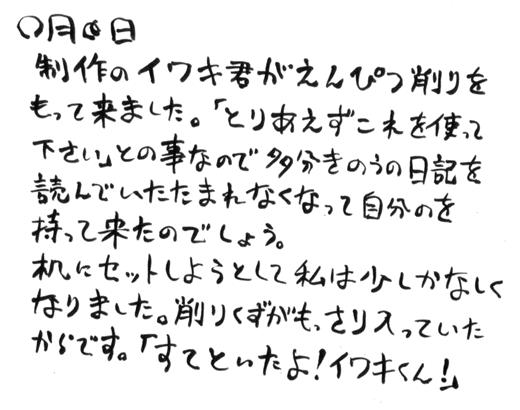 〇月〇日
制作のイワキ君がえんぴつ削りを
もって来ました。「とりあえずこれを使って
下さい」との事なので多分きのうの日記を
読んでいたたまれなくなって自分のを
持って来たのでしょう。
机にセットしようとして私は少しかなしく
なりました。削りくずがもっさり入っていた
からです。「すてといたよ!イワキくん!」